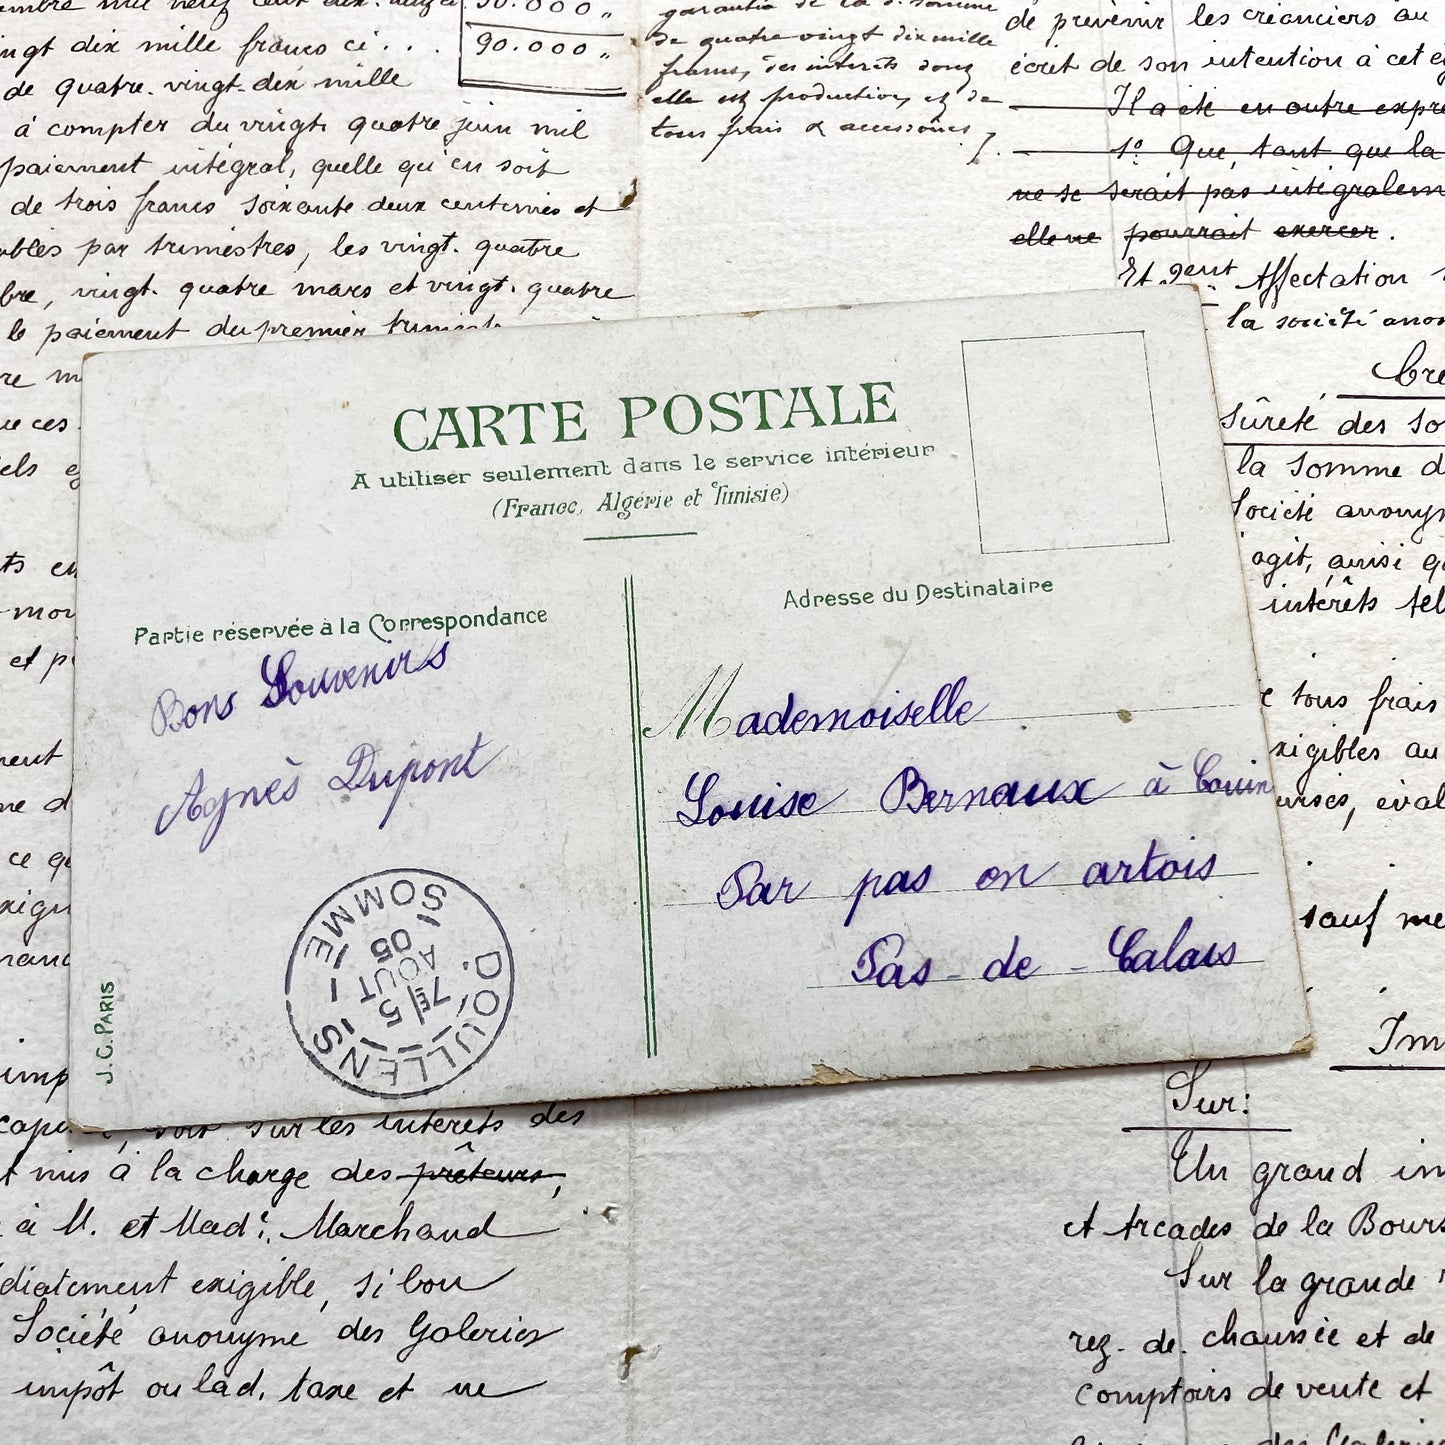 mil neuf cent dix.
90.000 "
vingt dix mille francs ci . . .
90.000 "
de quatre. vingt-dix mille
à compter du vingt. quatre juin mil
paiement intégral, quelle qu'en soit
de trois francs soixante deux centimes et
par trimestres, les vingt. quatre
bre, vingt. quatre mars et vingt. quatre
le paiement du premier
garantie de la d. somme
de quatre vingt dix mille
francs, des intérêts dont
elle est production, et de
tous frais & accessoires
de prévenir les créanciers au
écrit de son intention à cet
Il a été en outre
1º Que, tant que la
ne se serait pas
elle ne pourrait exercer.
Et Affectation
la société
sûreté des
la somme
Société
agit, ainsi
intérêts
tous frais
exigibles au
sauf
CARTE POSTALE
A utiliser seulement dans le service intérieur
(France, Algérie et Tunisie)
Partie réservée à la Correspondance
Bons Souvenirs
Agnès Dupont
Adresse du Destinataire
Mademoiselle
Louise Bernaux à Couin
Par pas en artois
Pas-de-Calais
DOULLENS
SOMME
7E 5
AOUT
05
J.C. PARIS
et
ce
soit sur les intérêts des
mis à la charge des prêteurs,
à M. et Made. Marchand
exigible, si bon
Société anonyme des Galeries
impôt ou lad. taxe et ne
Sur:
Un grand
et Arcades de la
Sur la grande
rez. de. chaussée et de
comptoirs de vente et